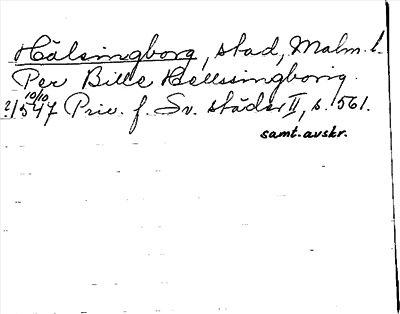 Hälsingborg, stad, Malm. l.
Per Bille Hellssingborg.
10/10
2/1547 Priv. f. Sv. städer II, s. 561.
samt. avskr.